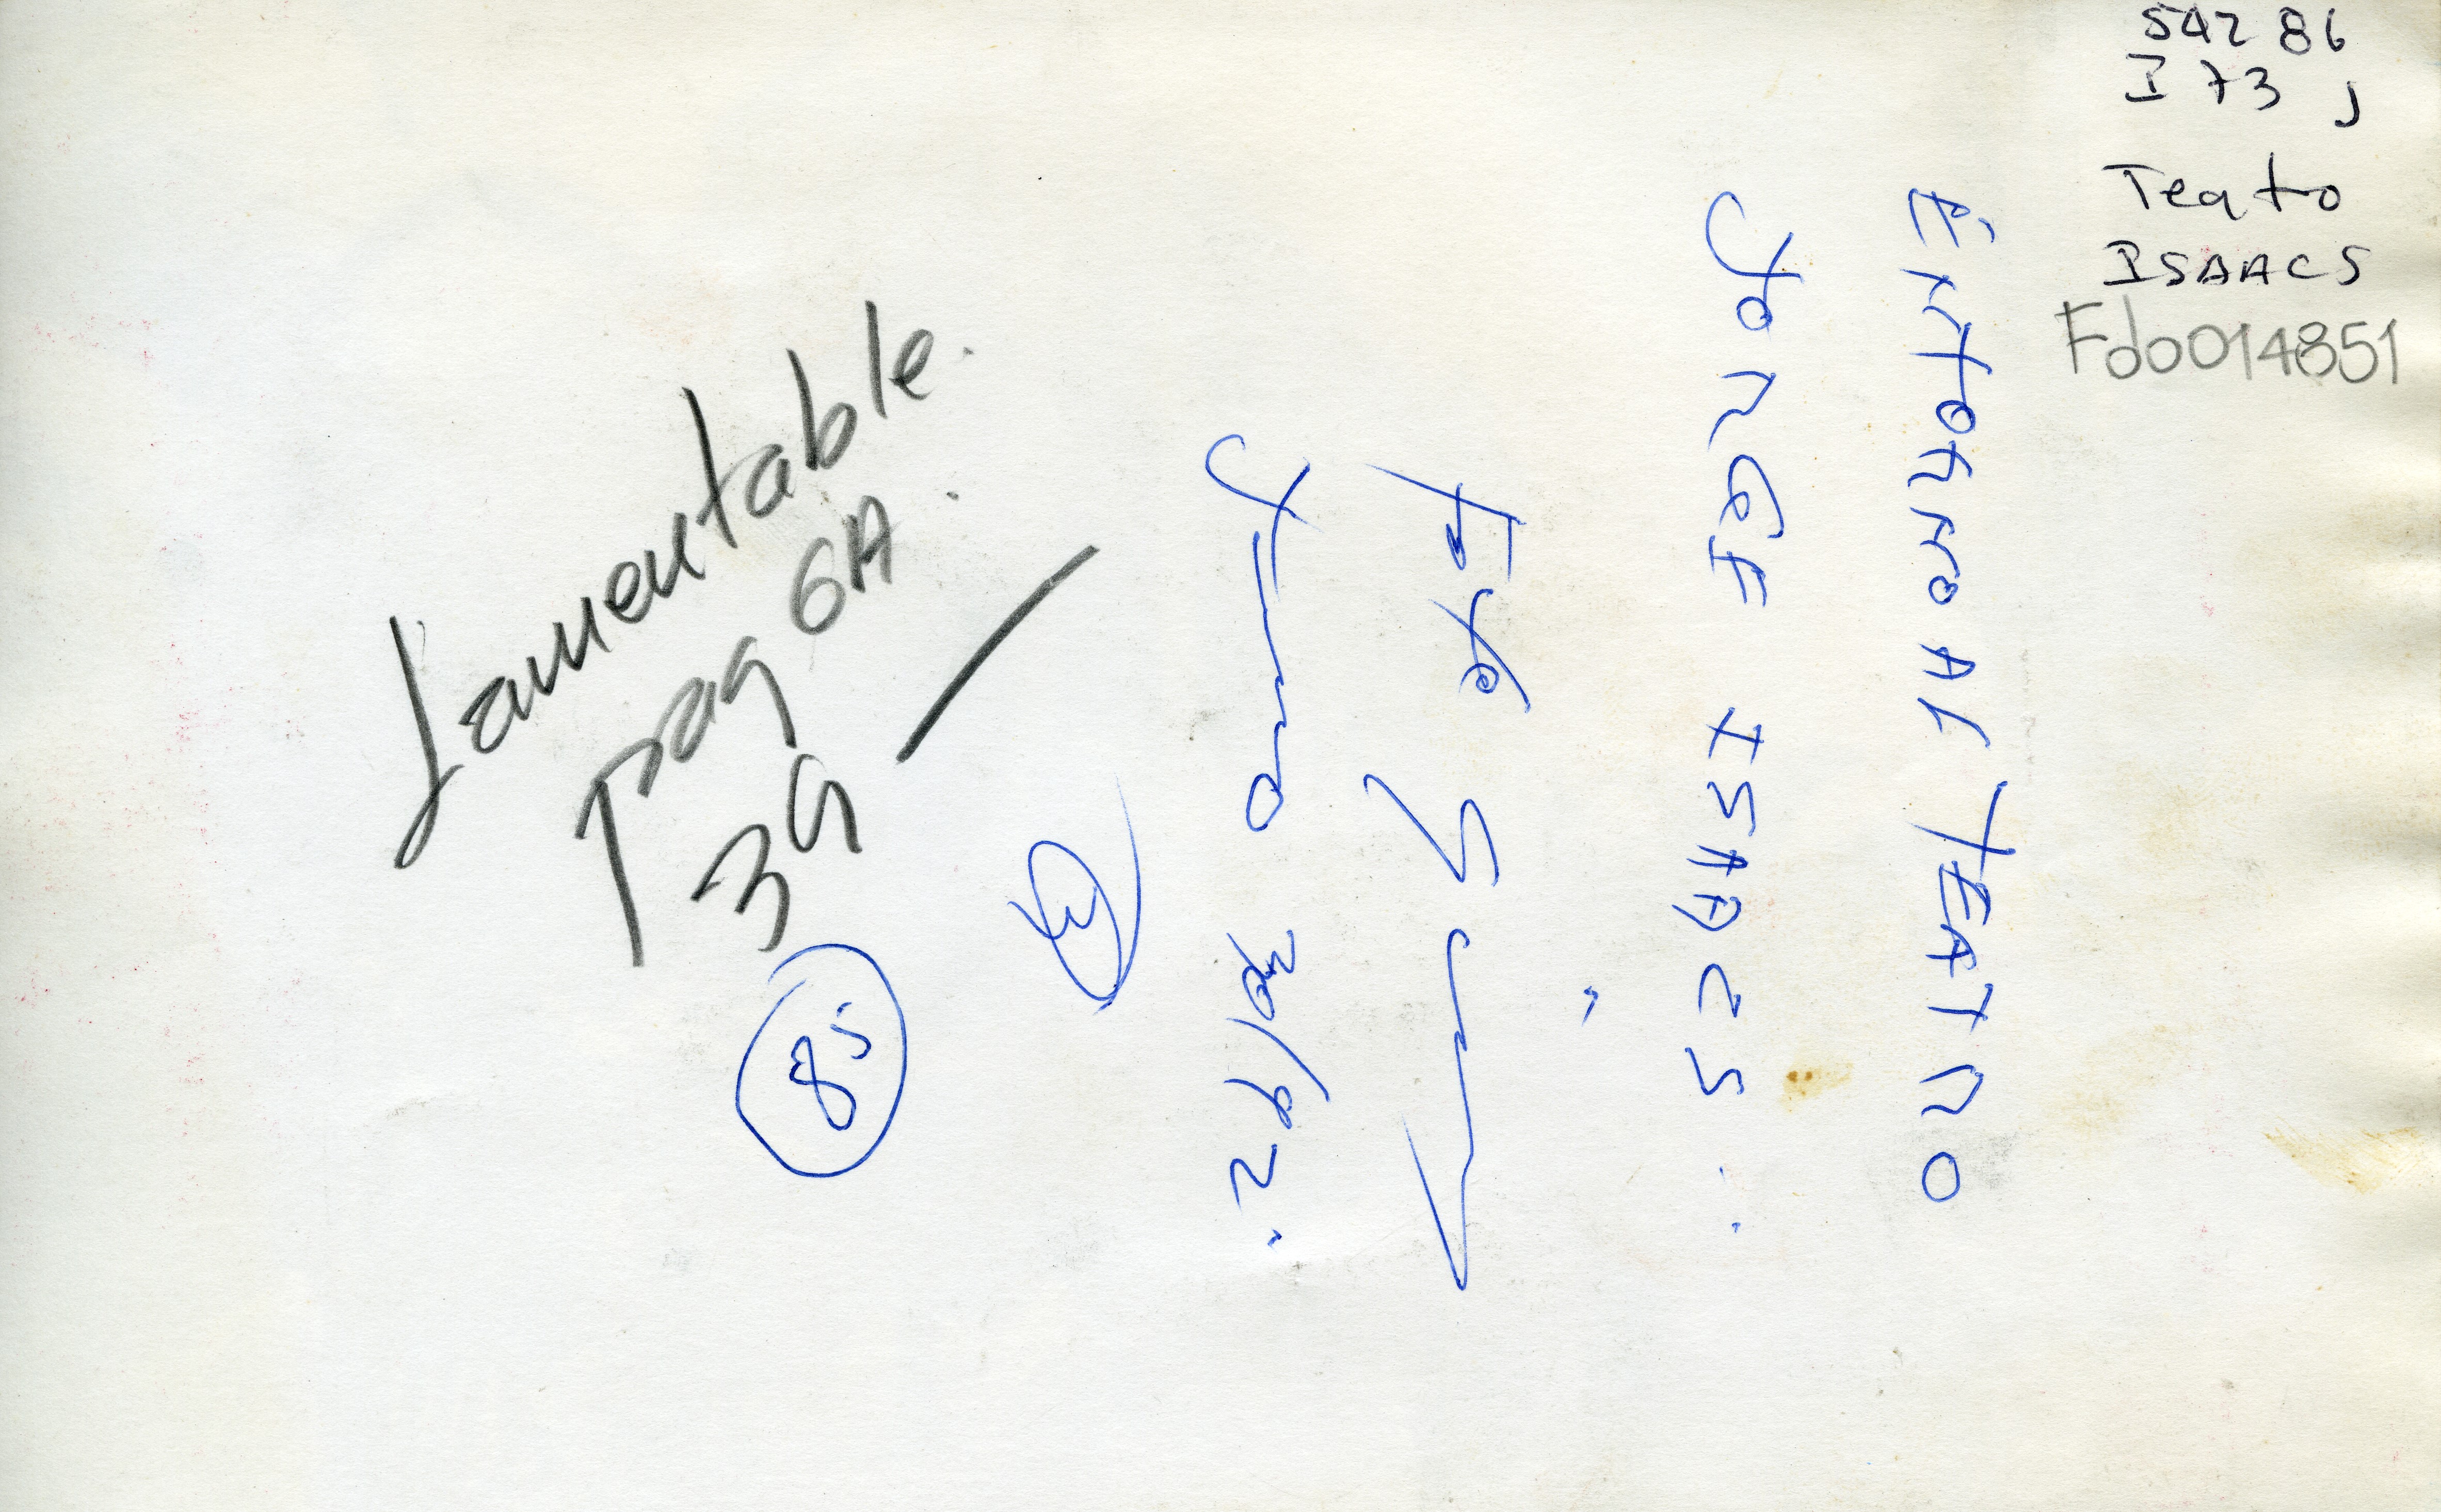 542 86
I 73 J
Teatro
ISAACS
Fdo014851
ENTORNO AL TEATRO
JORGE ISAACS
Foto
Lamentable.
pag 6A.
39
85